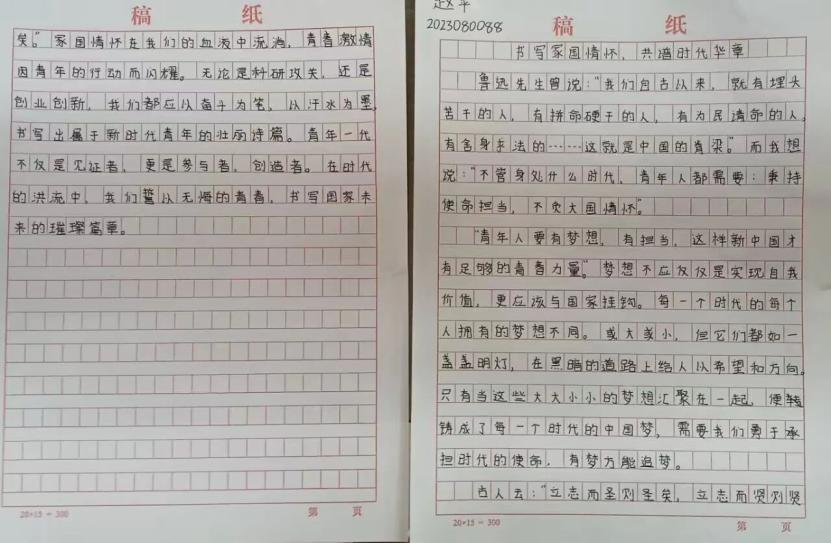 赵平
2023080088
稿 纸
书写家国情怀，共谱时代华章
鲁迅先生曾说："我们自古以来，就有埋头
苦干的人，有拼命硬干的人，有为民请命的人，
有舍身求法的……这就是中国的脊梁。"而我想
说："不管身处什么时代，青年人都需要：秉持
使命担当，不负大国情怀"。
"青年人要有梦想，有担当，这样新中国才
有足够的青春力量。"梦想不应仅仅是实现自我
价值，更应该与国家挂钩。每一个时代的每个
人拥有的梦想不同。或大或小，但它们都如一
盏盏明灯，在黑暗的道路上给人以希望和方向。
只有当这些大大小小的梦想汇聚在一起，便转
铸成了每一个时代的中国梦，需要我们勇于承
担时代的使命，有梦方能追梦。
古人云："立志而圣则圣矣，立志而贤则贤
20×15＝300 第 页
稿 纸
矣。"家国情怀在我们的血液中流淌，青春激情
因青年的行动而闪耀。无论是科研攻关，还是
创业创新，我们都应以奋斗为笔，以汗水为墨，
书写出属于新时代青年的壮丽诗篇。青年一代
不仅是见证者，更是参与者，创造者。在时代
的洪流中，我们誓以无悔的青春，书写国家未
来的璀璨篇章。
20×15＝300 第 页